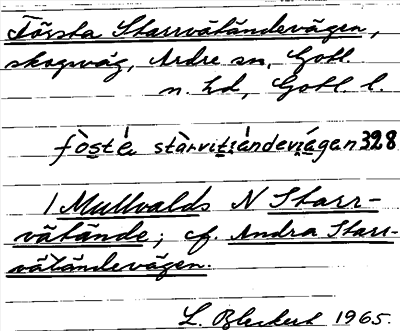 Första Starrvätändevägen,
skogsväg, Ardre sn, Gotl.
n. hd, Gotl. l.
fòsté stàrvitiándeviágen 328
/ Mullvalds N Starr-
vätände; cf. Andra Starr-
vätändevägen.
L. Bleckert 1965.